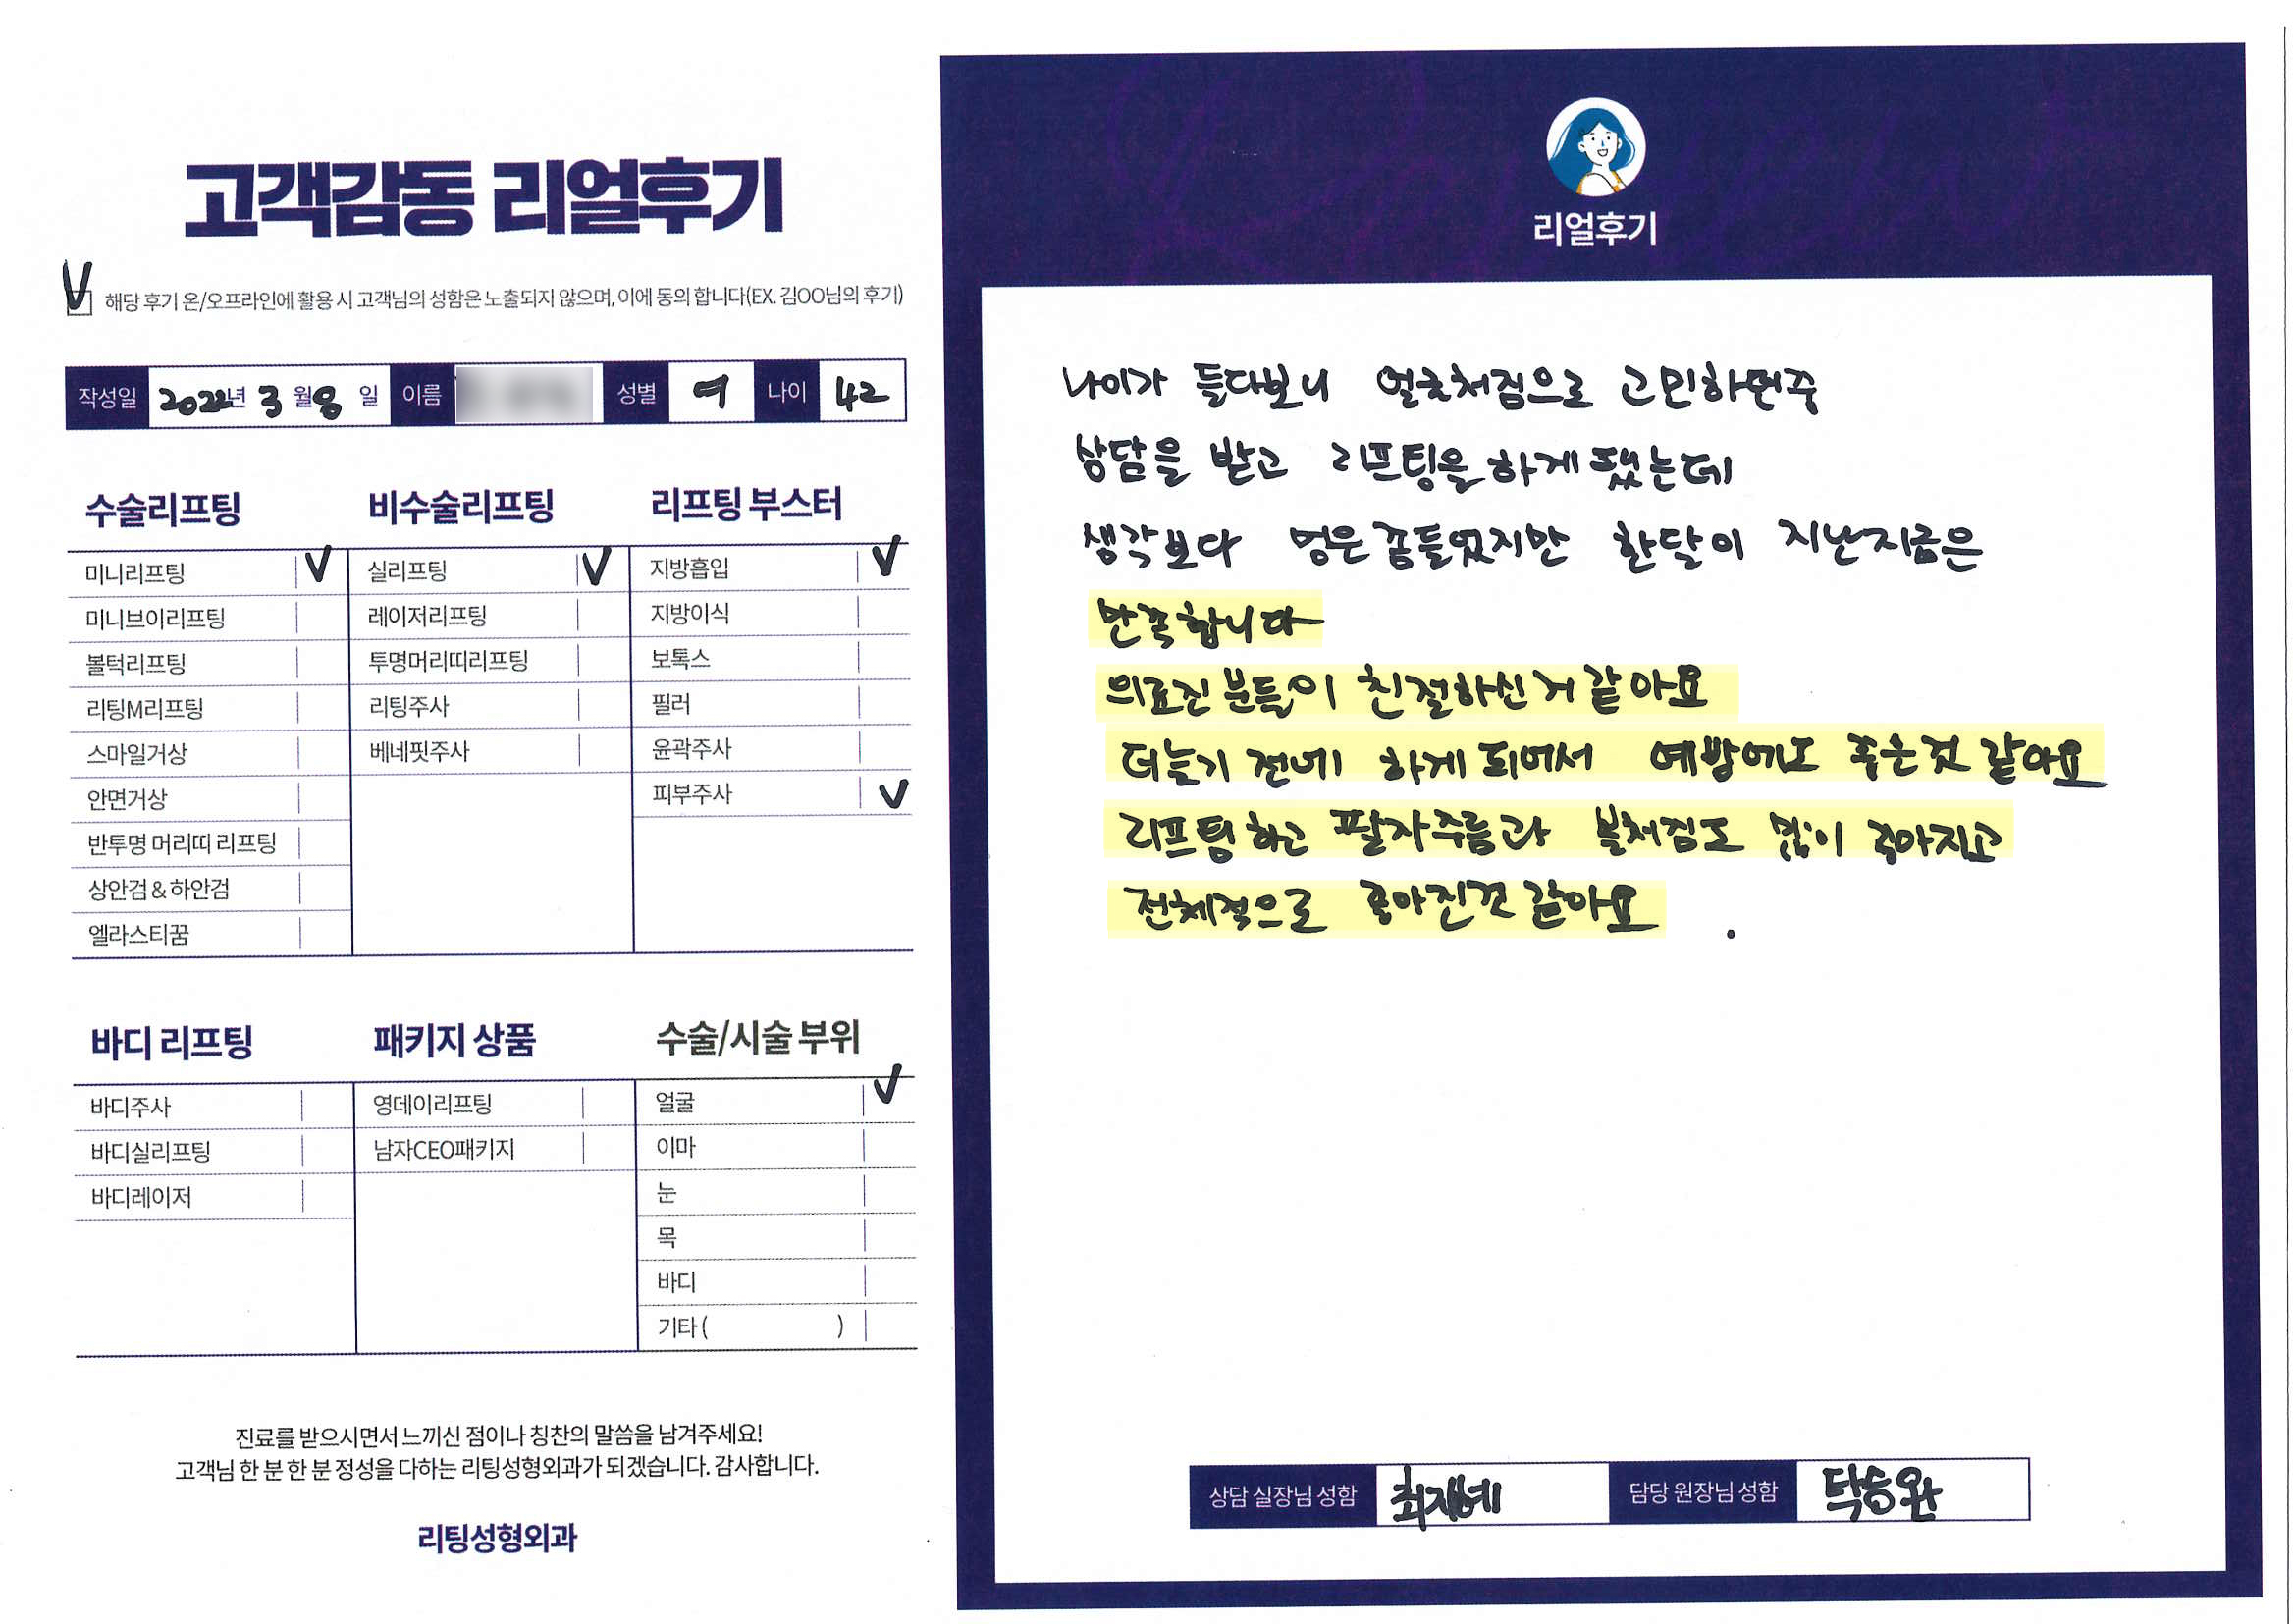 고객감동 리얼후기
V 해당 후기 온/오프라인에 활용 시 고객님의 성함은 노출되지 않으며, 이에 동의 합니다(EX. 김OO님의 후기)
작성일 2022년 3월 8일 이름 성별 여 나이 42
수술리프팅
미니리프팅 V
미니브이리프팅
볼턱리프팅
리팅M리프팅
스마일거상
안면거상
반투명 머리띠 리프팅
상안검 & 하안검
엘라스티꿈
비수술리프팅
실리프팅 V
레이저리프팅
투명머리띠리프팅
리팅주사
베네핏주사
리프팅 부스터
지방흡입 V
지방이식
보톡스
필러
윤곽주사
피부주사 V
바디 리프팅
바디주사
바디실리프팅
바디레이저
패키지 상품
영데이리프팅
남자CEO패키지
수술/시술 부위
얼굴 V
이마
눈
목
바디
기타 ( )
진료를 받으시면서 느끼신 점이나 칭찬의 말씀을 남겨주세요!
고객님 한 분 한 분 정성을 다하는 리팅성형외과가 되겠습니다. 감사합니다.
리팅성형외과
리얼후기
나이가 들다보니 얼굴처짐으로 고민하던중
상담을 받고 리프팅을 하게 됐는데
생각보다 멍은 좀들었지만 한달이 지난지금은
만족합니다
의료진 분들이 친절하신거 같아요
더늙기 전에 하게 되어서 예방에도 좋은것 같아요
리프팅 하고 팔자주름과 볼처짐도 많이 좋아지고
전체적으로 좋아진것 같아요.
상담 실장님 성함 담당 원장님 성함